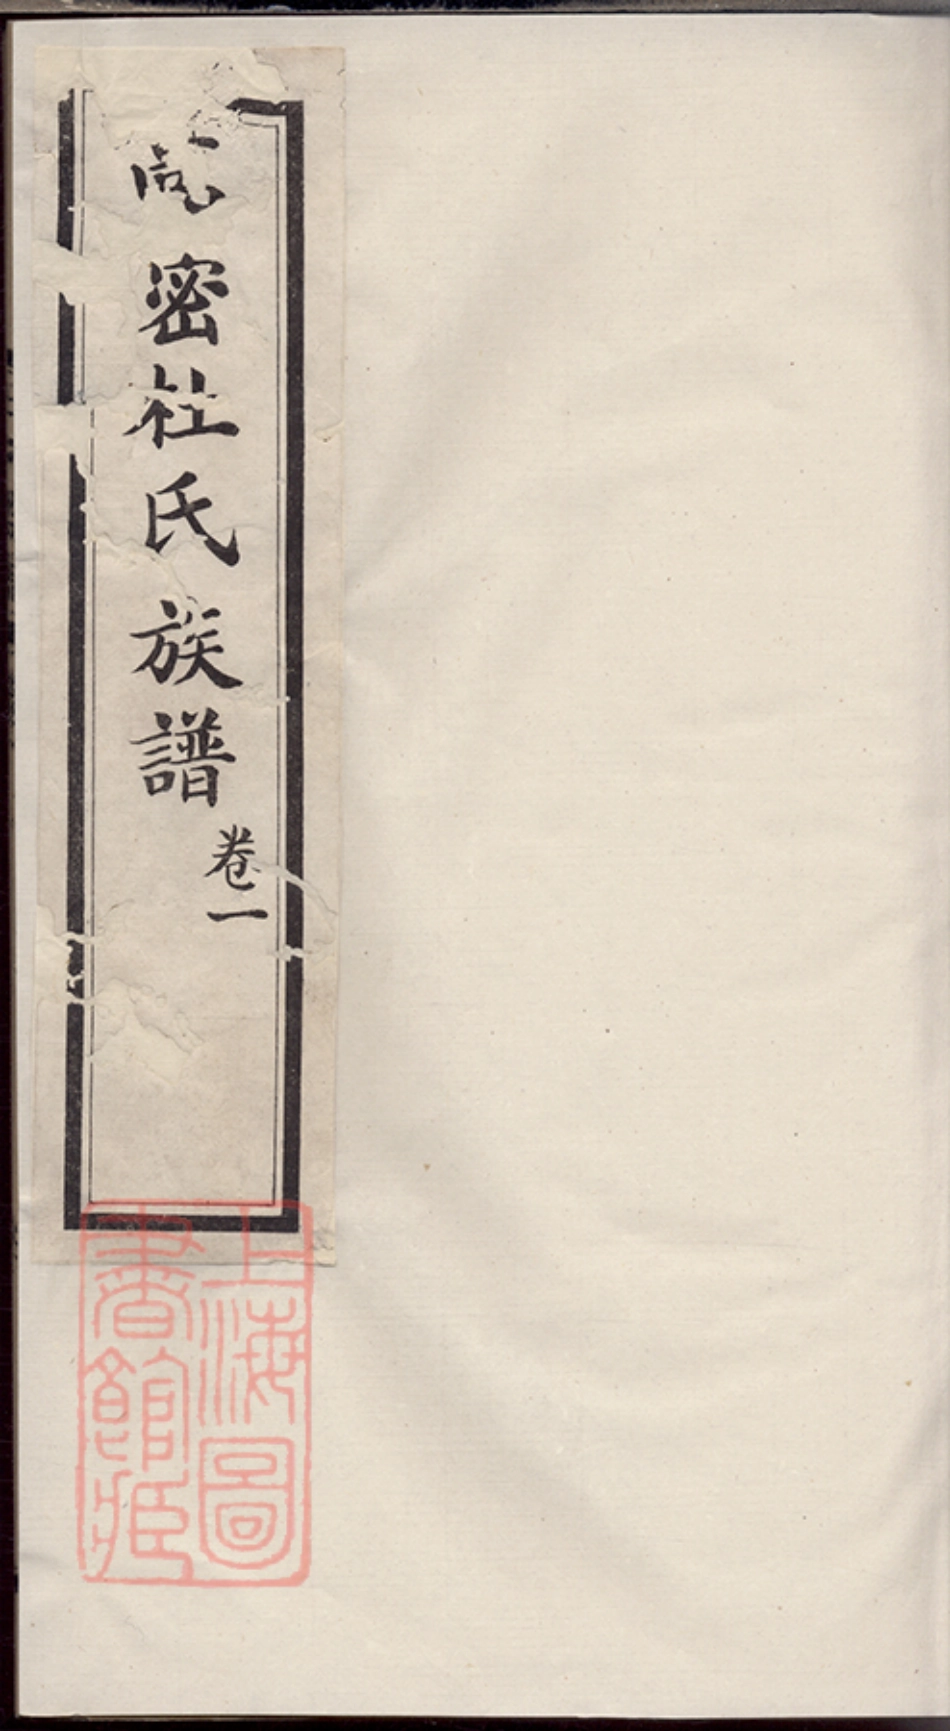 密杜氏族譜
卷一
上海圖
書館藏